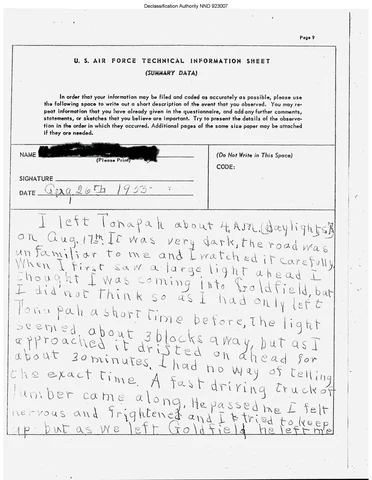 Declassification Authority NND 923007
Page 9
U. S. AIR FORCE TECHNICAL INFORMATION SHEET
(SUMMARY DATA)
In order that your information may be filed and coded as accurately as possible, please use
the following space to write out a short description of the event that you observed. You may re-
peat information that you have already given in the questionnaire, and add any further comments,
statements, or sketches that you believe are important. Try to present the details of the observa-
tion in the order in which they occurred. Additional pages of the same size paper may be attached
if they are needed.
NAME
(Please Print)
SIGNATURE
DATE 26th 1955
(Do Not Write in This Space)
CODE:
I left Tonapah about 4 A.M. (daylights
on Aug. 17th It was very dark, the road was
unfamiliar to me and I watched it carefully.
When I first saw a large light ahead I
thought I was coming into Goldfield, but
I did not think so as I had only left
Tonapah a short time before, the light
seemed about 3 blocks away, but as I
approached it drifted on ahead for
about 30 minutes. I had no way of telling
the exact time. A fast driving truck of
lumber came along. He passed me I felt
nervous and frightened and I tried to keep
up but as we left Goldfield he left me